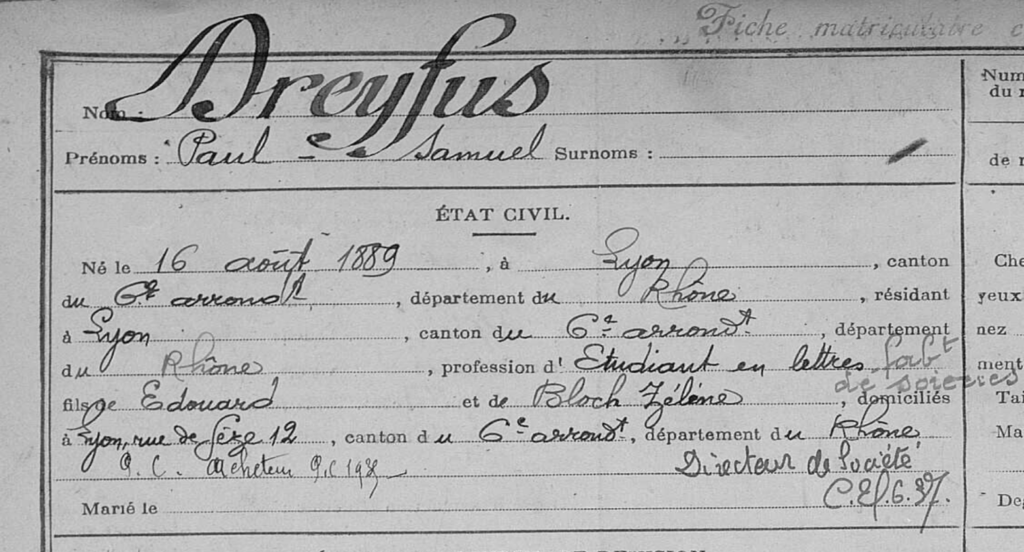 Fiche matriculaire c
Nom : Dreyfus
Prénoms : Paul - Samuel Surnoms :
Num
du r
de r
ÉTAT CIVIL.
Né le 16 août 1889, à Lyon, canton
du 6e arrondt, département du Rhône, résidant
à Lyon, canton du 6e arrondt, département
du Rhône, profession d' Etudiant en lettres fabt
de soieries
fils de Edouard et de Bloch Zélène, domiciliés
à Lyon, rue de Sèze 12, canton du 6e arrondt, département du Rhône
P. C. Acheteur P.C 19 Directeur de Société
Marié le C. El. 6. 37.
Che
yeux
nez
ment
Tai
Ma
Deg